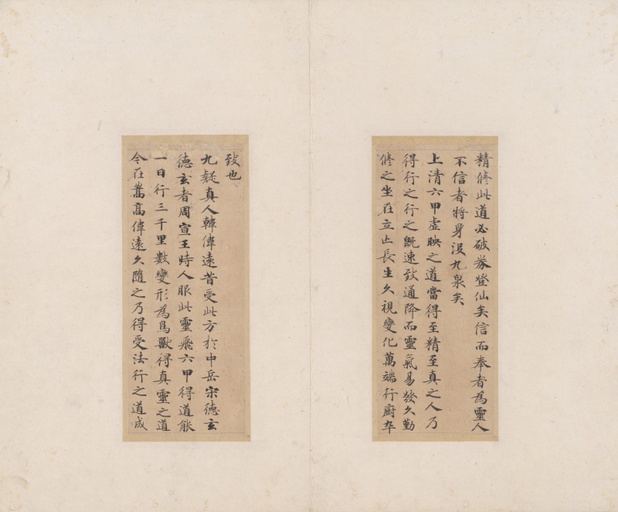 精修此道必破券登仙矣信而奉者為靈人
不信者將身没九泉矣
上清六甲虛映之道當得至精至真之人乃
得行之行之既速致通降而靈氣易發久勤
修之坐在立亡長生久視變化萬端行廚卒
致也
九疑真人韓偉遠昔受此方於中岳宋德玄
德玄者周宣王時人服此靈飛六甲得道能
一日行三千里數變形為鳥獸得真靈之道
今在嵩高偉遠久隨之乃得受法行之道成